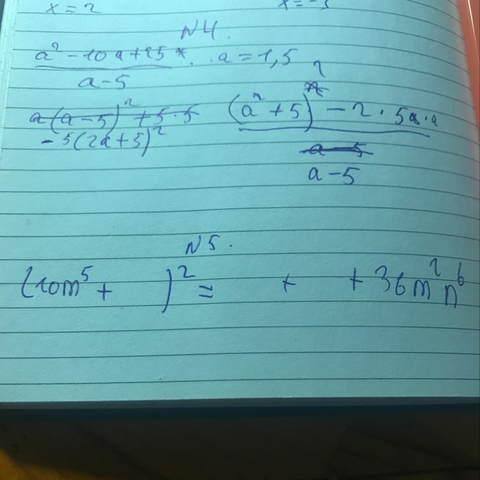 x = 2 x = -3
N4.
a² - 10a + 25 . a = 1,5
a - 5
a(a - 5)² + 5 · 5 (a² + 5)² - 2 · 5a · a
- 5(2a + 5)² a - 5
a - 5
N5.
(10m⁵ + )² = + + 36m²n⁶